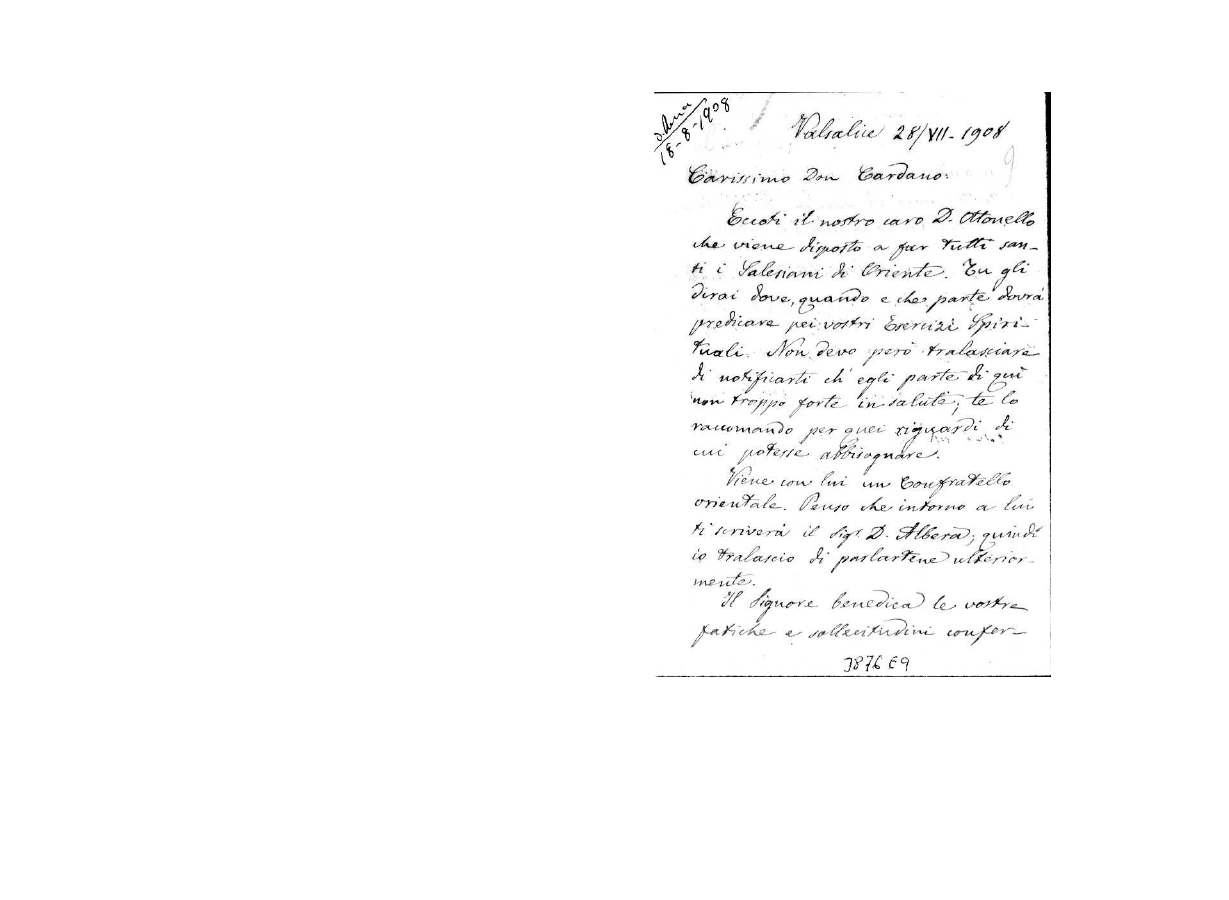 D. Rua
18-8-1908
Valsalice 28/VII-1908
9
Carissimo Don Cardano:
Eccoti il nostro caro D. Ottonello
che viene disposto a far tutti san-
ti i Salesiani di Oriente. Tu gli
dirai dove, quando e che parte dovrà
predicare pei vostri Esercizi Spiri-
tuali. Non devo però tralasciare
di notificarti ch'egli parte di qui
non troppo forte in salute; te lo
raccomando per quei riguardi di
cui potesse abbisognare.
Viene con lui un Confratello
orientale. Penso che intorno a lui
ti scriverà il Sigr. D. Albera; quindi
io tralascio di parlartene ulterior-
mente.
Il Signore benedica le vostre
fatiche e sollecitudini confer-
3876 E9